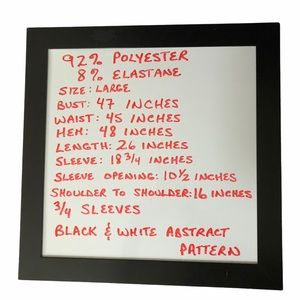 92% POLYESTER
8% ELASTANE
SIZE: LARGE
BUST: 47 INCHES
WAIST: 45 INCHES
HEM: 48 INCHES
LENGTH: 26 INCHES
SLEEVE: 18 3/4 INCHES
SLEEVE OPENING: 10 1/2 INCHES
SHOULDER TO SHOULDER: 16 INCHES
3/4 SLEEVES
BLACK & WHITE ABSTRACT
PATTERN